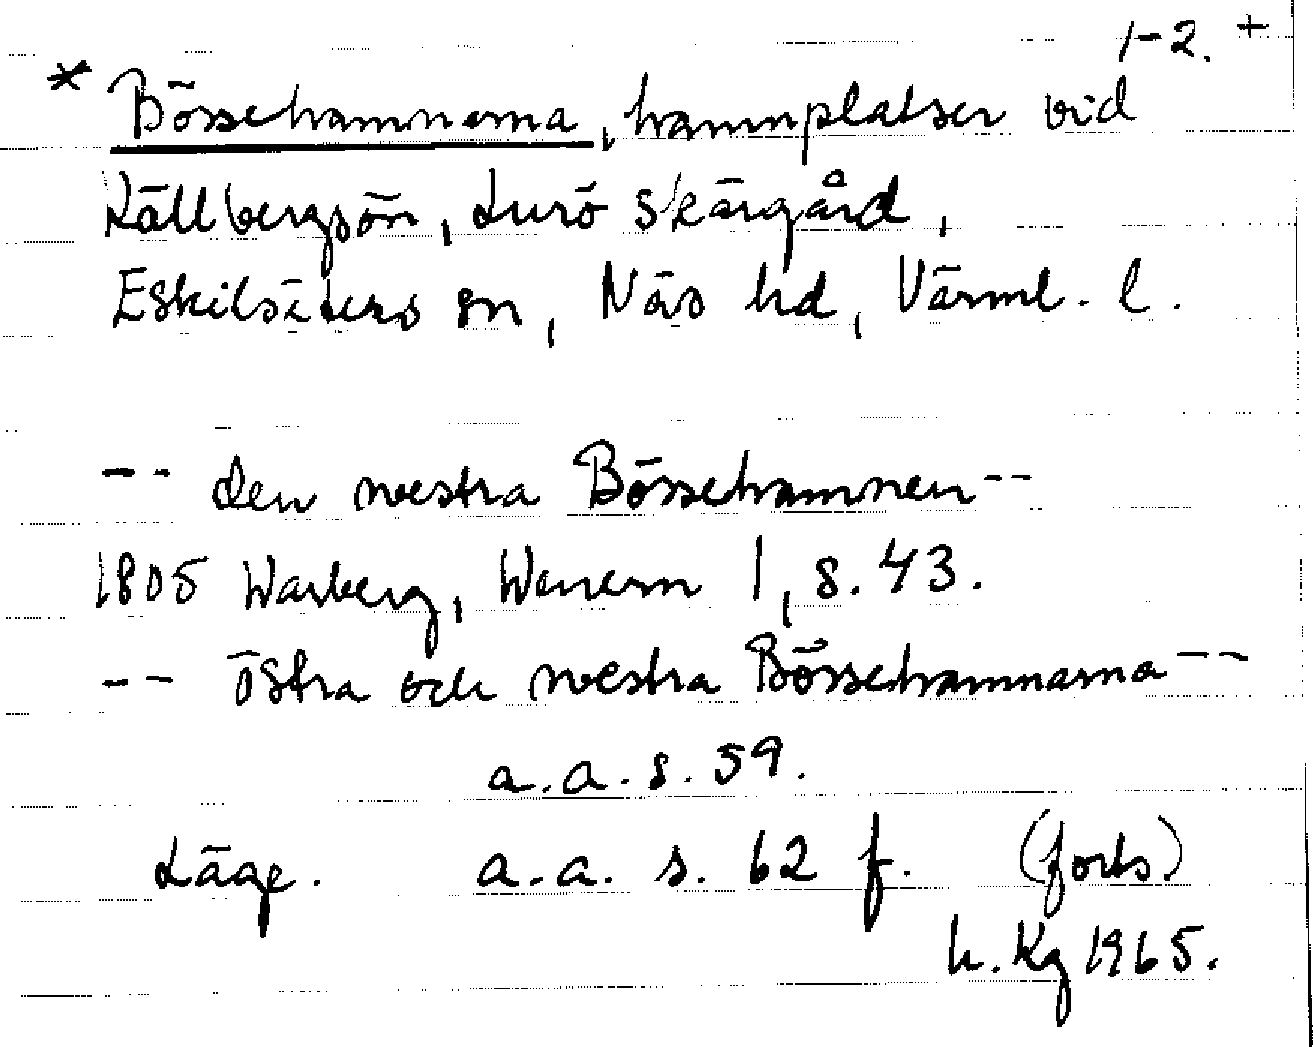 1-2. +
* Bössehamnarna, hamnplatser vid
Källbergsön, Lurö skärgård,
Eskilsäters sn, Näs hd, Värml. l.
-- den westra Bössehamnen --
1805 Warberg, Wenern 1, s. 43.
-- östra och westra Bössehamnarna --
a.a. s. 59.
Läge. a.a. s. 62 f. (forts.)
h. Kg 1965.